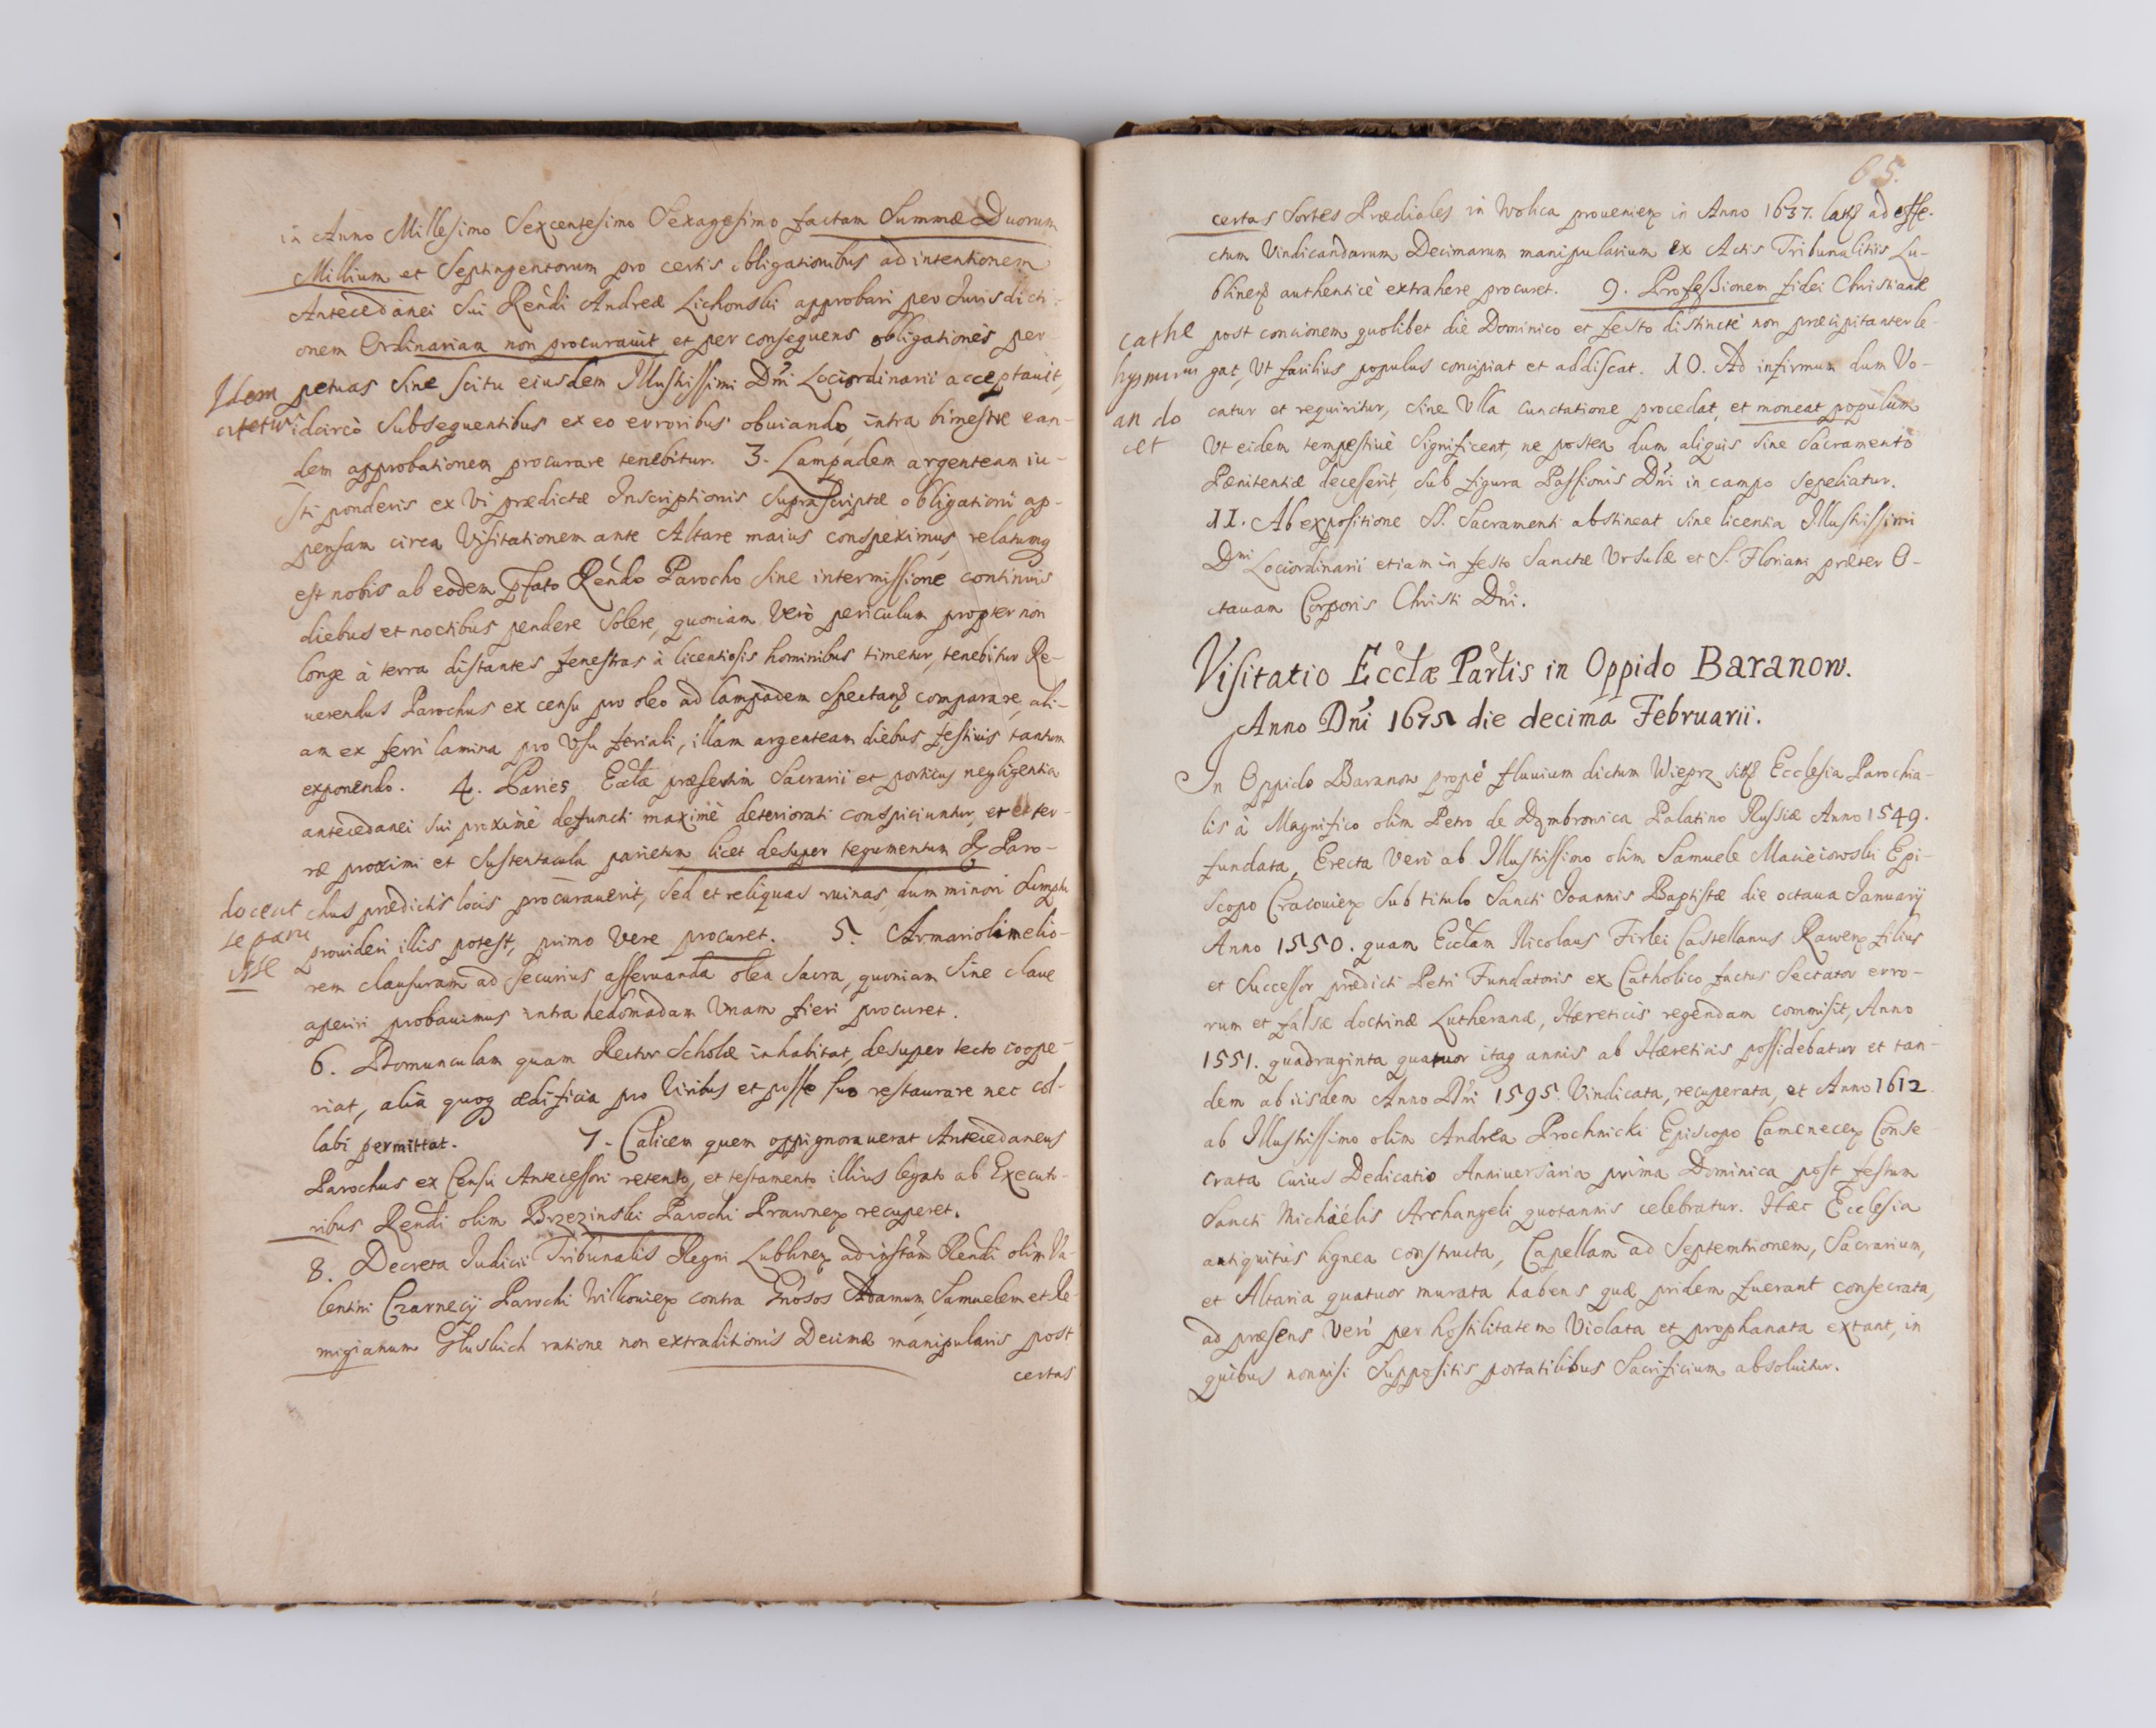 in Anno Millesimo Sexcentesimo Sexagesimo factam Summæ Duorum
Millium et Septingentorum pro certis obligationibus ad intentionem
Antecedanei Sui Rendi Andreæ Lichonski approbari per Iurisdicti-
onem Ordinariam non procurauit et per consequens obligationes per-
petuas Sine Scitu eiusdem Illustrissimi Dni Lociordinarii acceptauit,
Idem
citetur
idcircò Subsequentibus ex eo erroribus obuiando, intra bimestre ean-
dem approbationem procurare tenebitur. 3. Lampadem argenteam iu-
sti ponderis ex Vi prædictæ Inscriptionis Suprascriptæ obligationi ap-
pensam circa Visitationem ante Altare maius conspeximus, relatumq
est nobis ab eodem pfato Rendo Parocho Sine intermissione continuis
diebus et noctibus pendere Solere, quoniam Verò periculum propter non
longe à terra distantes fenestras à licentiosis hominibus timetur, tenebitur Re-
uerendus Parochus ex censu pro oleo ad lampadem Spectan comparare, ali-
am ex ferri lamina pro Vsu feriali, illam argenteam diebus festiuis tantum
exponendo. 4. Paries Ecclæ præsertim Sacrarii et porticus negligentia
antecedanei sui proximè defuncti maximè deteriorati conspiciuntur, et ex ter-
ræ proximi et Sustentacula parietum licet desuper tegumentum R Paro-
chus prædictis locis procurauerit, Sed et reliquas ruinas, dum minori Sumptu
docent
se paru
isse
prouideri illis potest, primo Vere procuret. 5. Armarioli melio-
rem clausuram ad Securius asseruanda olea Sacra, quoniam Sine claue
aperiri probauimus intra hedomadam Vnam fieri procuret.
6. Domunculam quam Rector Scholæ inhabitat, desuper tecto coope-
riat, alia quoq ædificia pro Viribus et posse suo restaurare nec col-
labi permittat. 7. Calicem quem oppignorauerat Antecedaneus
Parochus ex Censu Antecessori retento, et testamento illius legato ab Execut-
ribus Rendi olim Brzezinski Parochi Prawnen recuperet.
8. Decreta Iudicii Tribunalis Regni Lublinen ad instam Rendi olim Va-
lentini Czarnecij Parochi Wilkouien contra Gnosos Adamum, Samuelem et Re-
migianum Gluskich ratione non extraditionis Decimæ manipularis post
certas
65.
certas Sortes Prædiales in Wolica prouenien in Anno 1637. lat ad effe-
ctum Vindicandarum Decimarum manipularium ex Actis Tribunalitiis Lu-
blinen authenticè extrahere procuret. 9. Professionem fidei Christianæ
post concionem quolibet die Dominico et festo distinctè non præcipitanter le-
cathe
hyzmum
an do
cet
gat, Vt facilius populus concipiat et addiscat. 10. Ad infirmum dum Vo-
catur et requiritur, Sine Vlla cunctatione procedat, et moneat populum
Vt eidem tempestiuè Significent, ne postea dum aliquis Sine Sacramento
Pænitentiæ decesserit, Sub figura Passionis Dni in campo Sepeliatur.
11. Ab expositione SS. Sacramenti abstineat Sine licentia Illustrissimi
Dni Lociordinarii etiam in festo Sanctæ Vrsulæ et S. Floriani præter O-
ctauam Corporis Christi Dni.
Visitatio Ecclæ Parlis in Oppido Baranow.
Anno Dni 1675 die decima Februarii.
In Oppido Baranow propè fluuium dictum Wieprz sit Ecclesia Parochia-
lis à Magnifico olim Petro de Dambrowica Palatino Russiæ Anno 1549.
fundata, Erecta Verò ab Illustrissimo olim Samuele Macieiowski Epi-
scopo Cracouien Sub titulo Sancti Ioannis Baptistæ die octaua Ianuarij
Anno 1550. quam Ecclam Nicolaus Firlei Castellanus Rawen filius
et Successor prædicti Petri Fundatoris ex Catholico factus Sectator erro-
rum et falsæ doctrinæ Lutheranæ, Hæreticis regendam commisit, Anno
1551. quadraginta quatuor itaq annis ab Hæreticis possidebatur et tan-
dem ab iisdem Anno Dni 1595. Vindicata, recuperata, et Anno 1612
ab Illustrissimo olim Andrea Prochnicki Episcopo Camenecen Conse-
crata cuius Dedicatio Anniuersaria prima Dominica post festum
Sancti Michaélis Archangeli quotannis celebratur. Hæc Ecclesia
antiquitùs lignea constructa, Capellam ad Septemtrionem, Sacrarium,
et Altaria quatuor murata habens quæ pridem fuerant consecrata,
ad præsens Verò per hostilitatem Violata et prophanata extant, in
quibus nonnisi Suppositis portatilibus Sacrificium absoluitur.